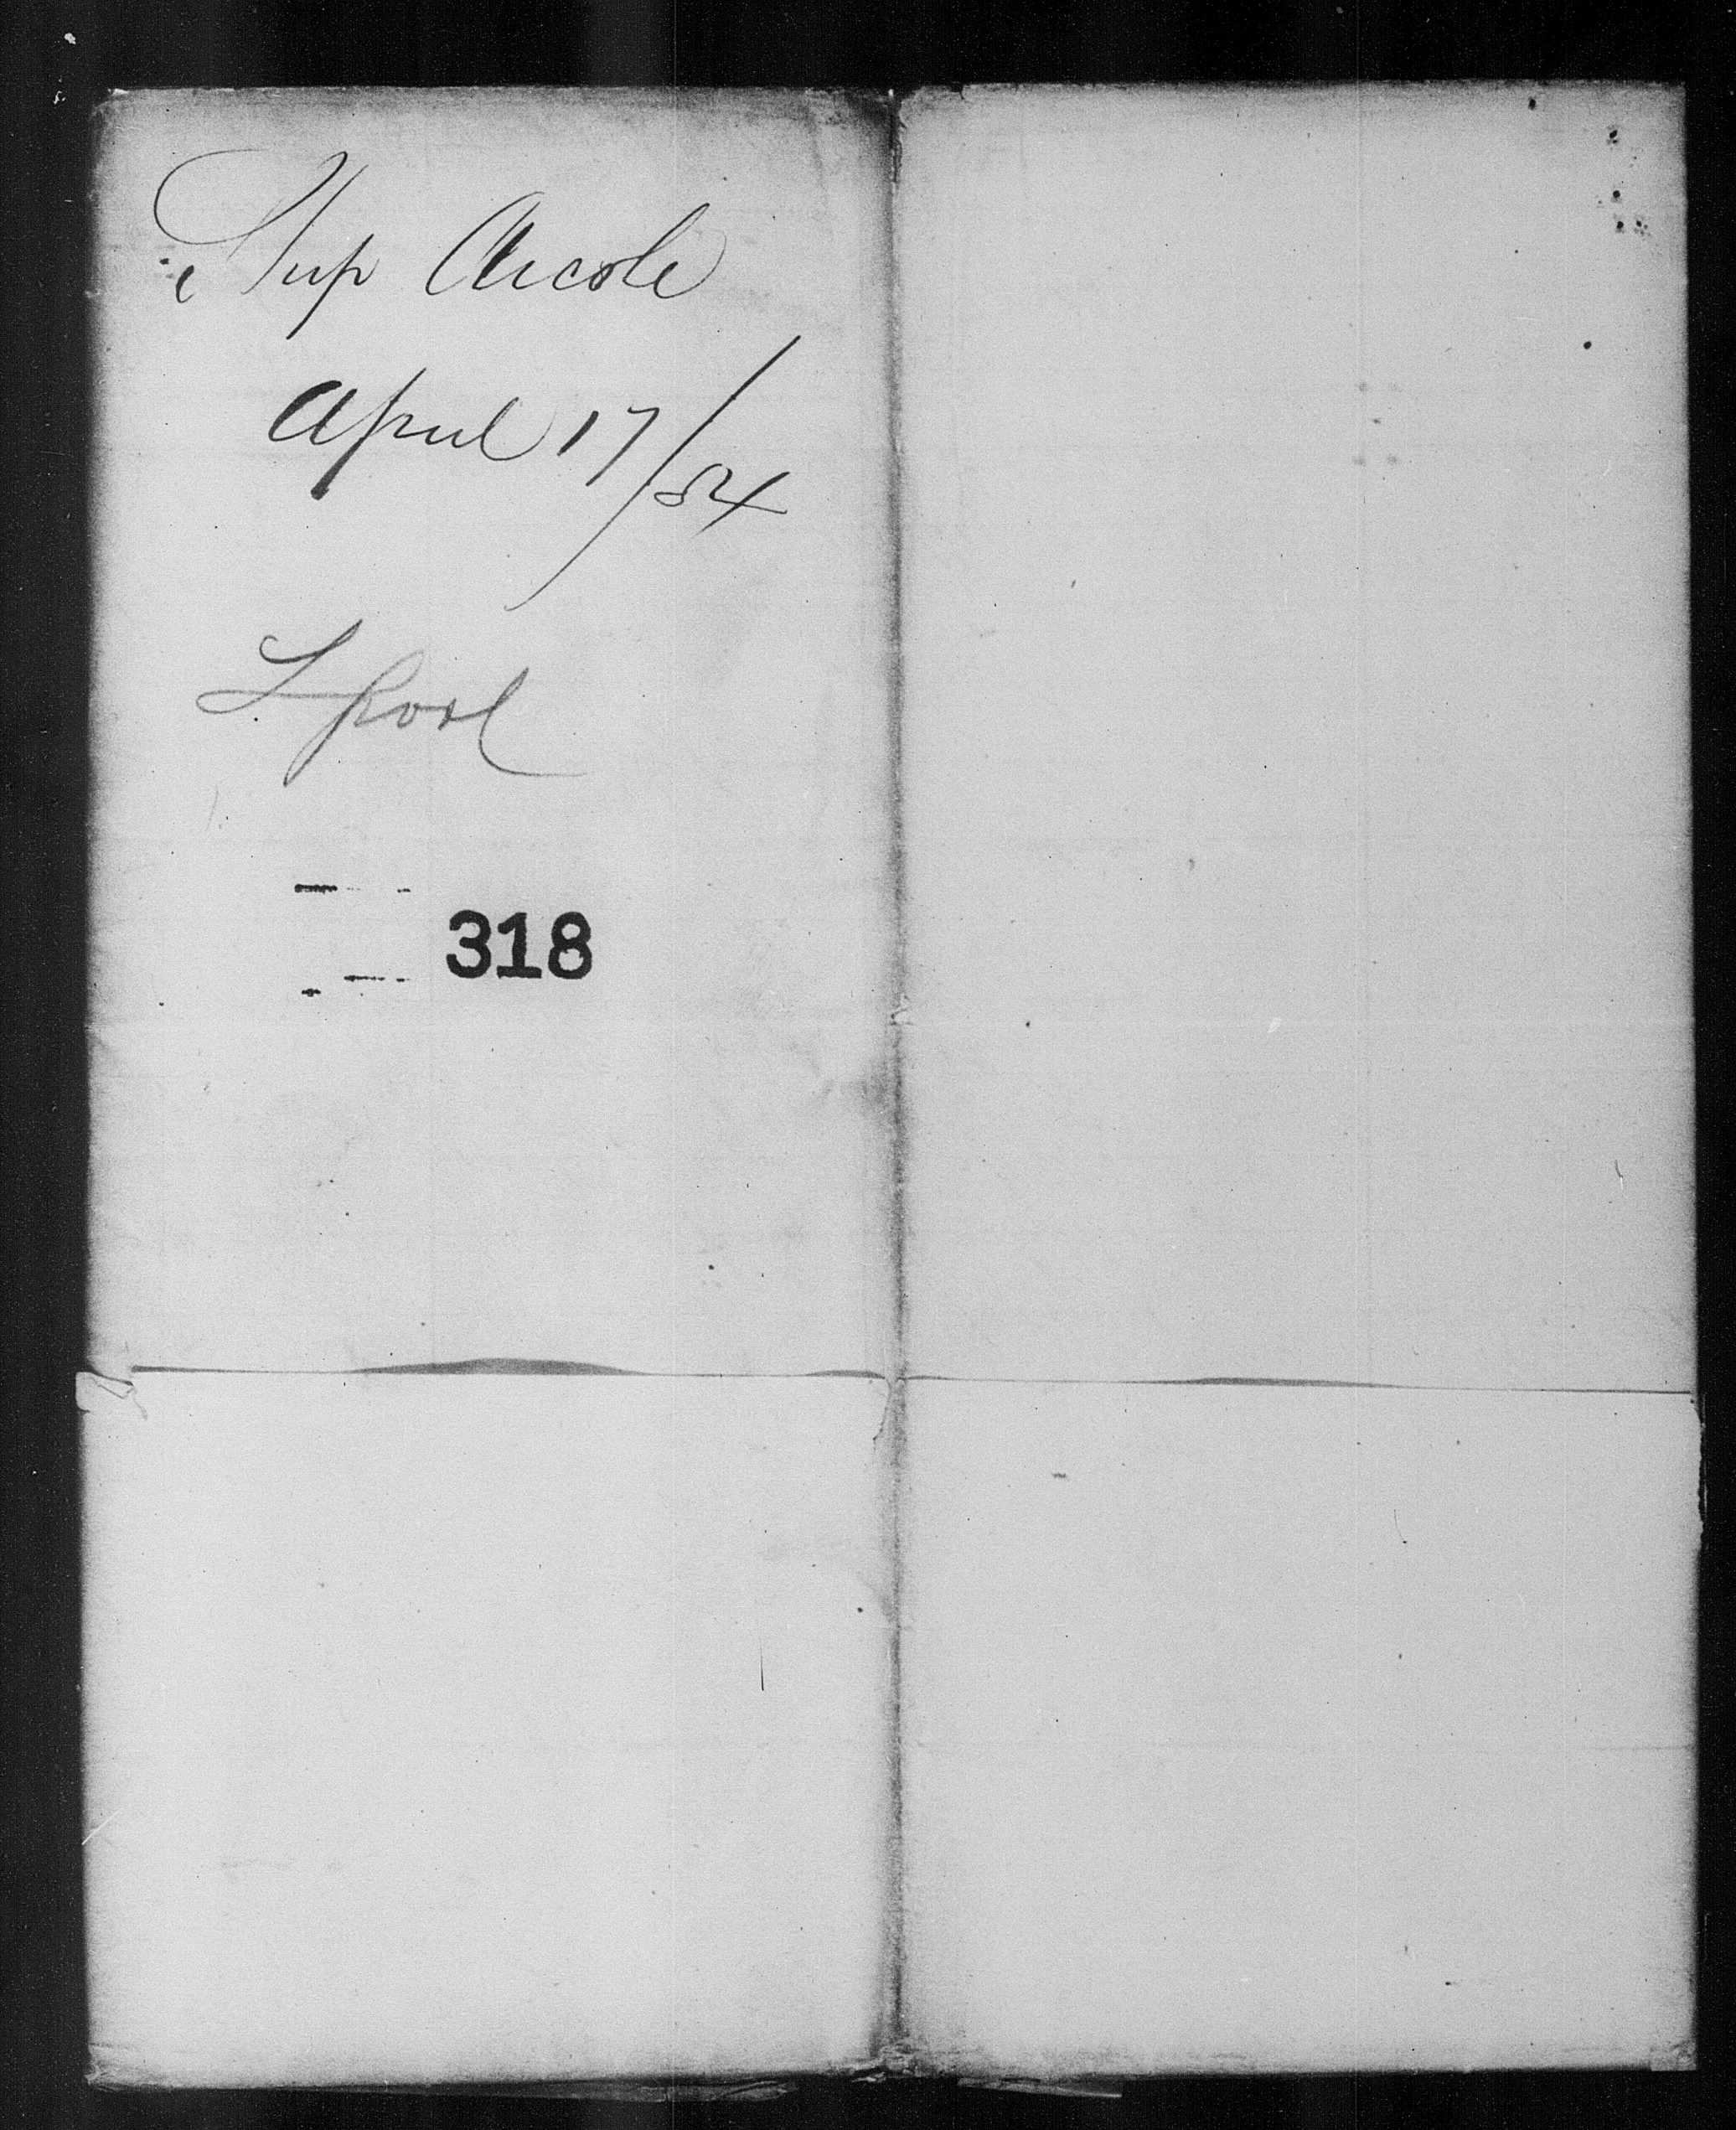 Ship Arcole
April 17/54
Lpool
318